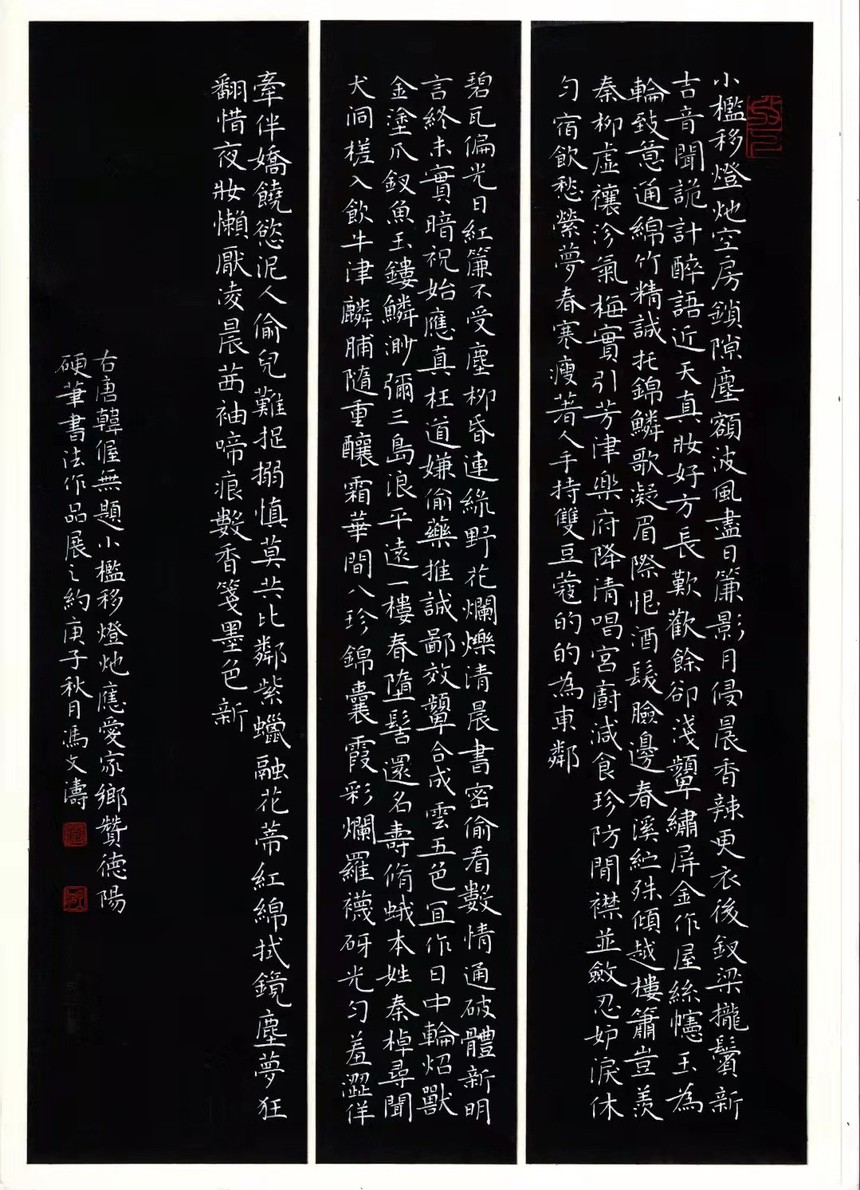 小檻移燈灺空房鎖隙塵額波風盡日簾影月侵晨香辣更衣後釵梁攏鬢新
吉音聞詭計醉語近天真妝好方長歎歡餘卻淺顰繡屏金作屋絲幰玉為
輪致意通綿竹精誠托錦鱗歌凝眉際恨酒髮臉邊春溪紅殊傾越樓簫豈羨
秦柳虛禳沴氣梅實引芳津樂府降清唱宮廚減食珍防閒襟並斂忍妒淚休
勻宿飲愁縈夢春寒瘦著人手持雙豆蔻的的為東鄰
碧瓦偏光日紅簾不受塵柳昏連綠野花爛爍清晨書密偷看數情通破體新明
言終未實暗祝始應真枉道嫌偷藥推誠鄙效顰合成雲五色宜作日中輪炤獸
金塗爪釵魚玉鏤鱗渺彌三島浪平遠一樓春墮髻還名壽脩蛾本姓秦棹尋聞
犬洞槎入飲牛津麟脯隨重釀霜華間八珍錦囊霞彩爛羅襪砑光勻羞澀佯
牽伴嬌饒慾泥人偷兒難捉搦慎莫共比鄰紫蠟融花蒂紅綿拭鏡塵夢狂
翻惜夜妝懶厭凌晨茜袖啼痕數香箋墨色新
右唐韓偓無題小檻移燈灺應愛家鄉贊德陽
硬筆書法作品展之約庚子秋月馮文濤